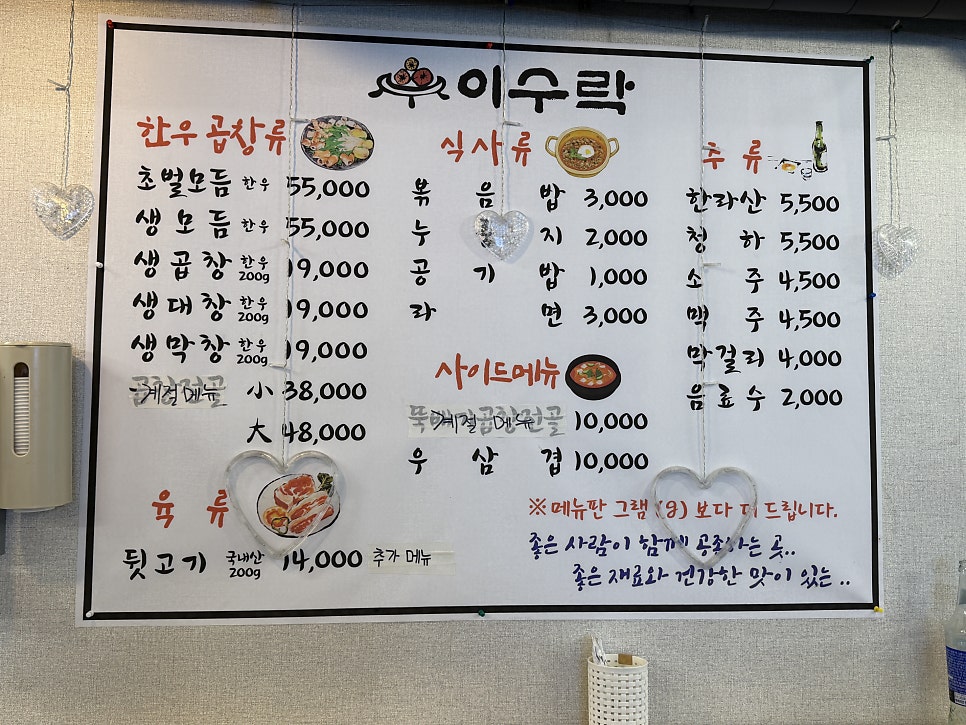 이수락
한우곱창류
초벌모듬 한우 55,000
생모듬 한우 55,000
생곱창 한우 200g 19,000
생대창 한우 200g 19,000
생막창 한우 200g 19,000
계절메뉴 小 38,000
大 48,000
육류
뒷고기 국내산 200g 14,000 추가 메뉴
식사류
볶음밥 3,000
누 지 2,000
공기밥 1,000
라면 3,000
사이드메뉴
계절 메뉴 10,000
우삼겹 10,000
주류
한라산 5,500
청하 5,500
소주 4,500
맥주 4,500
막걸리 4,000
음료수 2,000
※메뉴판 그램(g)보다 더 드립니다.
좋은 사람이 함께 공존하는 곳..
좋은 재료와 건강한 맛이 있는..